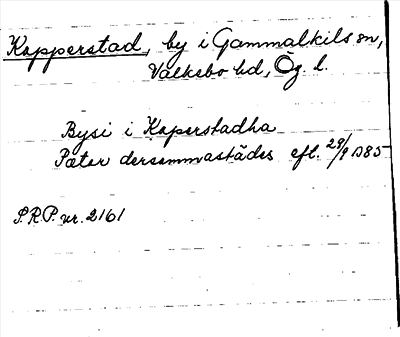 Kopperstad, by i Gammalkils sn,
Valkebo hd, Ög. l.
Bysi i Koperstadha
Pæter dersammastädes efl. 29/9 1385
S.R.P. nr. 2161